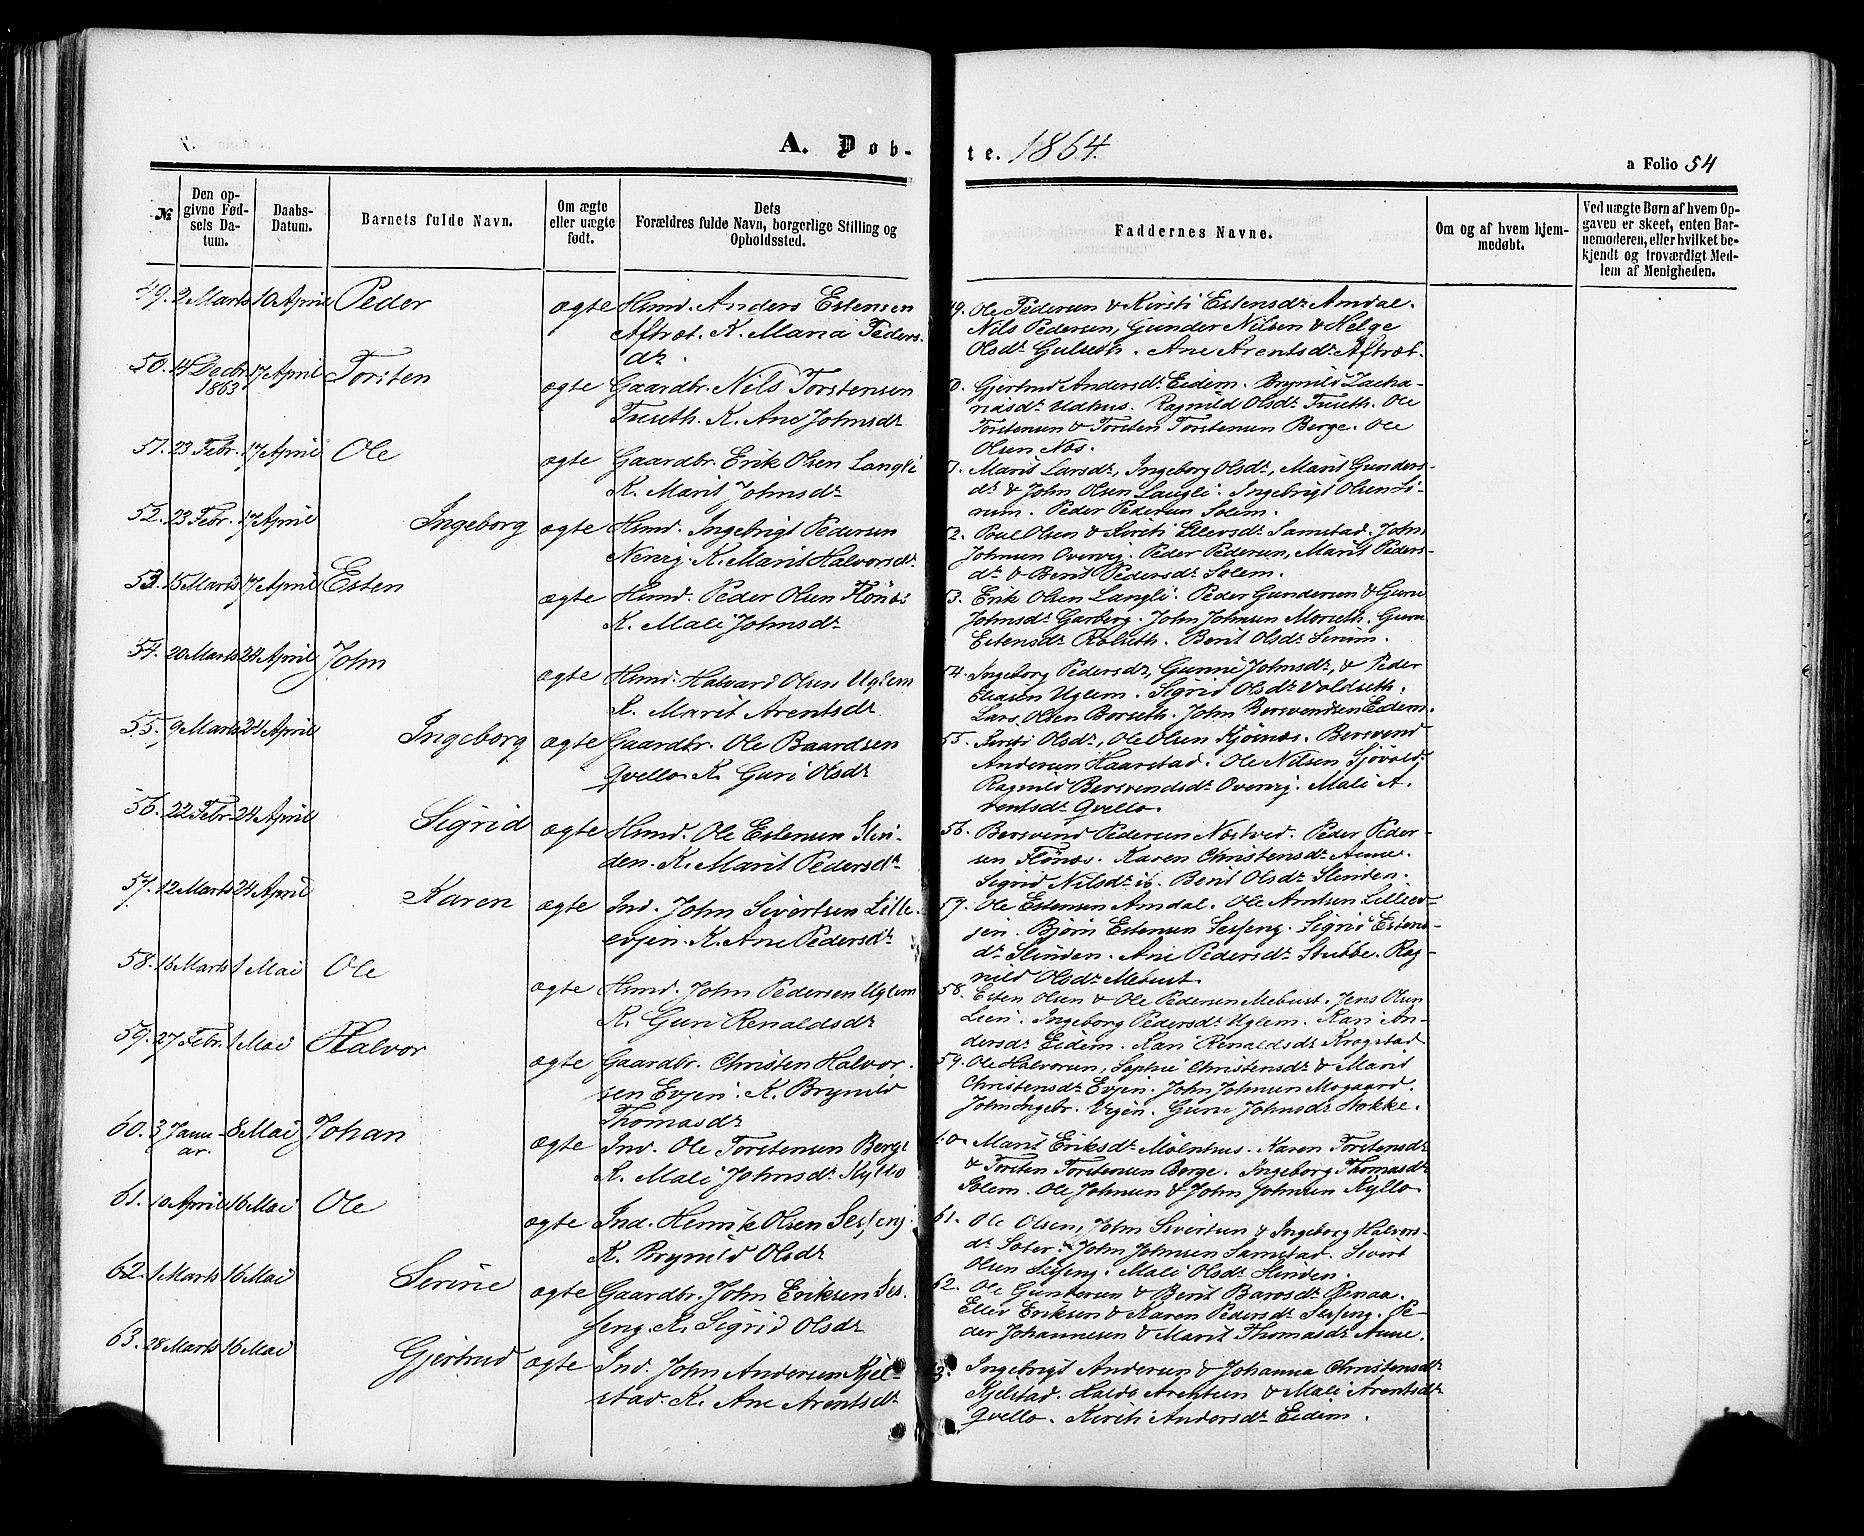 A. Døb-
te. 1864.
a Folio 54
№
Den op-
givne Fød-
sels Da-
tum.
Daabs-
Datum.
Barnets fulde Navn.
Om ægte
eller uægte
født.
Dets
Forældres fulde Navn, borgerlige Stilling og
Opholdssted.
Faddernes Navne.
Om og af hvem hjem-
medøbt.
Ved uægte Børn af hvem Op-
gaven er skeet, enten Bar-
nemoderen, eller hvilket be-
kjendt og troværdigt Med-
lem af Menigheden.
49. 2 Marts 10 April Peder ægte Hsmd. Anders Estensen
Aftræt. K. Maria Peders
dr.
49. Ole Pedersen & Kirsti Estensdr Amdal.
Nils Pedersen, Gunder Nilsen & Helge
Olsdr Gulseth. Ane Arentsdr Aftræt.
50. 14 Decbr 1863 17 April Torsten ægte Gaardbr. Nils Torstensen
Tuseth. K. Ane Johnsdr
0. Gjertrud Andersdr Eidem. Brynild Zacha-
riasdr Udhus. Ragnild Olsdr Tuseth. Ole
Torstensen & Torsten Torstensen Berge. Ole
Olsen Næs.
51. 23 Febr. 17 April Ole ægte Gaardbr. Erik Olsen Langli
K. Marit Johnsdr
1. Marit Larsdr, Ingeborg Olsdr, Marit Gunders-
dr & John Olsen Langli. Ingebrigt Olsen Si-
rum. Peder Pedersen Solem.
52. 23 Febr. 17 April Ingeborg ægte Hsmd. Ingebrigt Pedersen
Nervig. K. Marit Halvorsdr
2. Poul Olsen & Kirsti Ellersdr Samstad. John
Johnsen Overvig. Peder Pedersen, Marit Peders-
dr & Berit Pedersdr Solem.
53. 15 Marts 17 April Esten ægte Hsmd. Peder Olsen Flönæs
K. Mali Johnsdr
3. Erik Olsen Langli. Peder Gundersen & Guru
Johnsdr Garberg. John Johnsen Morseth. Guru
Estensdr Rolseth. Berit Olsdr Sirum.
54. 20 Marts 24 April John ægte Hsmd. Halvard Olsen Uglem
K. Marit Arentsdr
54. Ingeborg Pedersdr, Gunni Johnsdr, & Peder
Eliasen Uglem. Sigrid Olsdr Voldseth.
Lars Olsen Borseth. John Bersvendsen Eidem.
55. 9 Marts 24 April Ingeborg ægte Gaardbr. Ole Baardsen
Qvello. K. Guri Olsdr
55. Kirsti Olsdr, Ole Olsen Kjösnæs. Bersvend
Andersen Haarstad. Ole Nilsen Sjövold.
Ragnild Bersvendsdr Overvig. Mali A-
rentsdr Qvello.
56. 22 Febr 24 April Sigrid ægte Hsmd. Ole Estensen Slin-
den. K. Marit Pedersdr
56. Bersvend Pedersen Næstved. Peder Peder-
sen Flönæs. Karen Christensdr Aune.
Sigrid Nilsdr ib. Berit Olsdr Slinden.
57. 12 Marts 24 April Karen ægte Ind. John Sivertsen Lille-
evjen. K. Ane Pedersdr
57. Ole Estensen Amdal. Ole Arntsen Lilleev-
jen. Björn Estensen Sesseng. Sigrid Estens-
dr Slinden. Ane Pedersdr Stubbe. Rag-
nild Olsdr Mebust.
58. 16 Marts 1 Mai Ole ægte Hsmd. John Pedersen Uglem
K. Guri Renaldsdr
58. Esten Olsen & Ole Pedersen Mebust. Jens Olsen
Lien. Ingeborg Pedersdr Uglem. Kari An-
dersdr Eidem. Kari Renaldsdr Krogstad
59. 27 Febr. 1 Mai Halvor ægte Gaardbr. Christen Halvor-
sen Evjen. K. Brynild
Thomasdr
59. Ole Halvorsen, Sophie Christensdr & Marit
Christensdr Evjen. John Johnsen Mogaard.
John Ingebr. Vigen. Guru Johnsdr Stokke.
60. 3 Janu-
ar. 8 Mai Johan ægte Ind. Ole Torstensen Berge
K. Mali Johnsdr Kyllo
60. Marit Eriksdr Mölnhus. Karen Torstensdr
& Torsten Torstensen Berge. Ingeborg Thomasdr
Solem. Ole Johnsen & John Johnsen Kyllo.
61. 10 April 16 Mai Ole ægte Ind. Henrik Olsen Sesseng
K. Brynild Olsdr
61. Ole Olsen, John Sivertsen & Ingeborg Halvors-
dr Sater. John Johnsen Samstad. Sivert
Olsen Sesseng. Mali Olsdr Slinden.
62. 1 Marts 16 Mai Serine ægte Gaardbr. John Eriksen Ses-
seng. K. Sigrid Olsdr
62. Ole Gundersen & Berit Barosdr Renaa.
Eller Eriksen & Karen Pedersdr Sesseng. Pe-
der Johannesen & Marit Thomasdr Aune.
63. 28 Marts 16 Mai Gjertrud ægte Ind. John Andersen Kjel-
stad. K. Ane Arentsdr
3. Ingebrigt Andersen & Johanna Christensdr
Kjelstad. Haldo Arentsen & Mali Arentsdr
Qvello. Kirsti Andersdr Eidem.